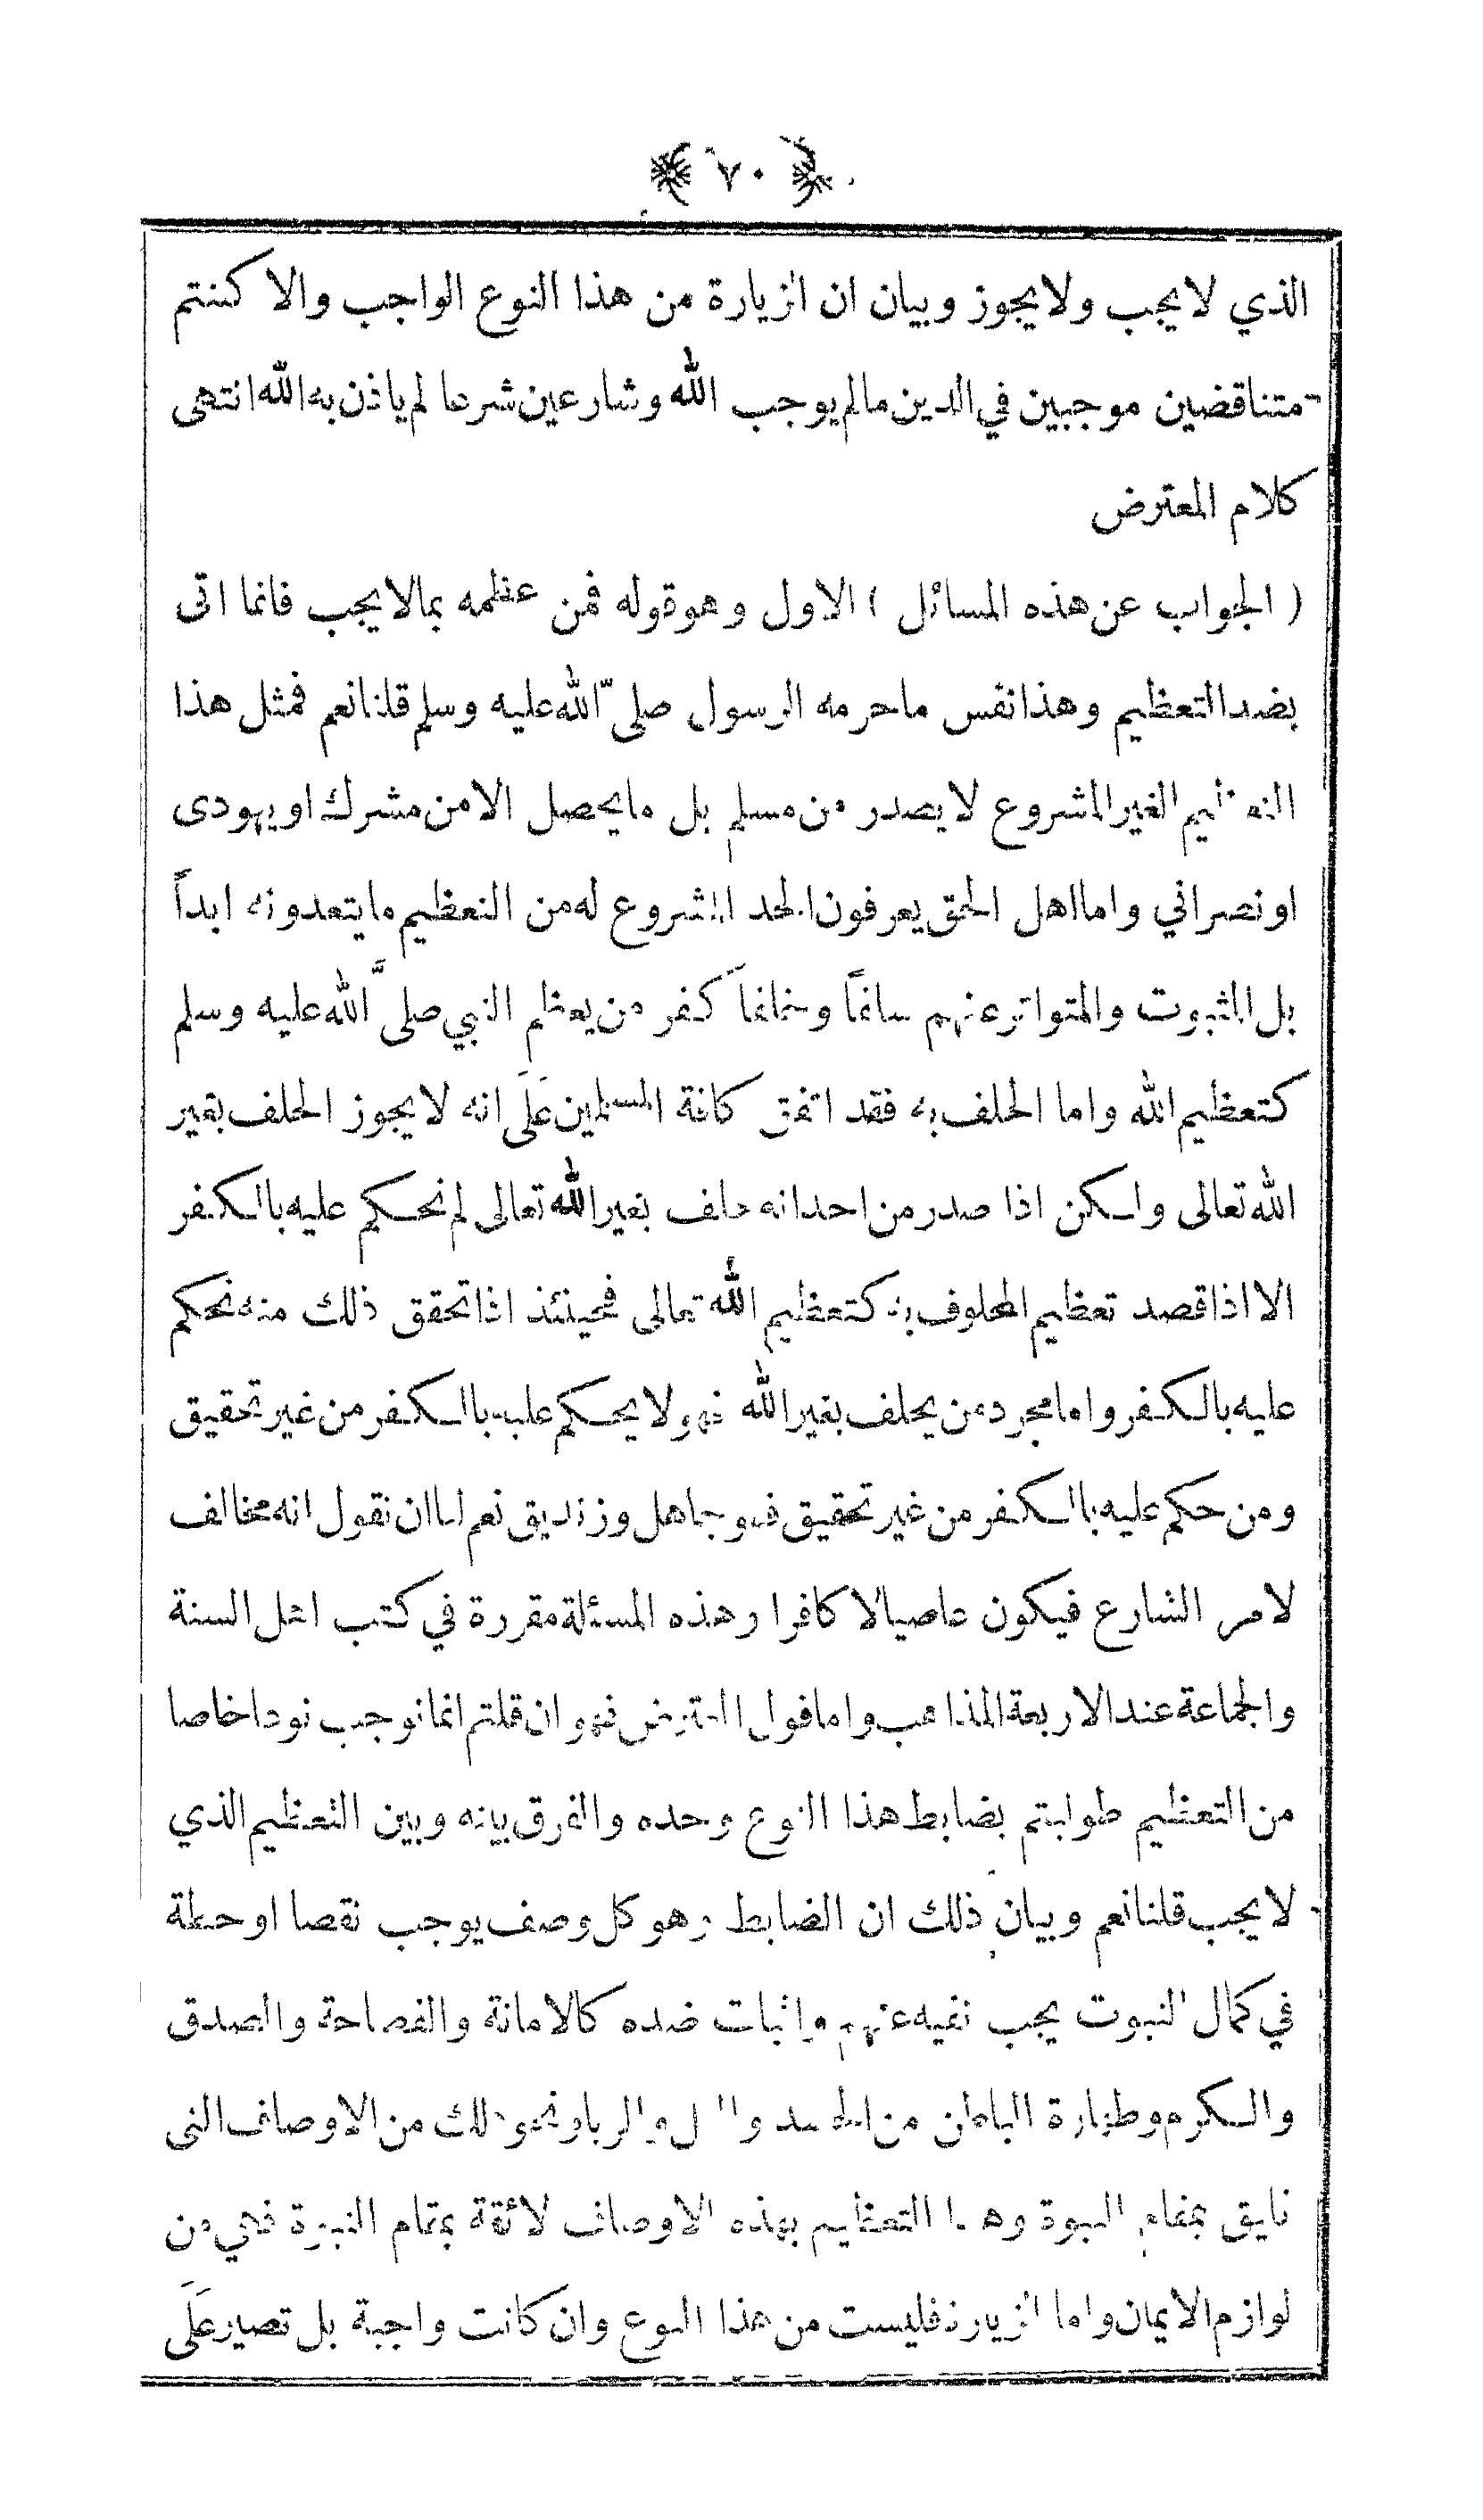 ﴿ ٧٠ ﴾
الذي لا يجب ولا يجوز وبيان ان الزيارة من هذا النوع الواجب والا كنتم
متناقضين موجبين في الدين مالم يوجب الله وشارعين شرعا لم ياذن به الله انتهى
كلام المعترض
( الجواب عن هذه المسائل ) الاول وهو قوله فمن عظمه بما لا يجب فانما اتى
بضد التعظيم وهذا نفس ما حرمه الرسول صلى الله عليه وسلم قلنا نعم فمثل هذا
التعظيم الغير المشروع لا يصدر من مسلم بل ما يحصل الا من مشرك او يهودى
او نصراني واما اهل الحق يعرفون الحد المشروع له من التعظيم ما يتعدونه ابداً
بل المثبوت والمتواتر عنهم سلفاً وخلفاً كفر من يعظم النبي صلى الله عليه وسلم
كتعظيم الله واما الحلف به فقد اتفق كافة المسلمين على انه لا يجوز الحلف بغير
الله تعالى ولكن اذا صدر من احد انه حلف بغير الله تعالى لم نحكم عليه بالكفر
الا اذا قصد تعظيم المحلوف به كتعظيم الله تعالى فحينئذ اذا تحقق ذلك منه نحكم
عليه بالكفر واما مجرد من يحلف بغير الله فهو لا يحكم عليه بالكفر من غير تحقيق
ومن حكم عليه بالكفر من غير تحقيق فهو جاهل وزنديق نعم لنا ان نقول انه مخالف
لامر الشارع فيكون عاصيا لا كافرا وهذه المسئلة مقررة في كتب اهل السنة
والجماعة عند الاربعة المذاهب واما قول المعترض فهو ان قلتم انما نوجب نوعا خاصا
من التعظيم طولبتم بضابط هذا النوع وحده والفرق بينه وبين التعظيم الذي
لا يجب قلنا نعم وبيان ذلك ان الضابط وهو كل وصف يوجب نقصا او حطة
في كمال النبوت يجب نفيه عنهم واثبات ضده كالامانة والفصاحة والصدق
والكرم وطهارة الباطن من الحسد والربا ونحو ذلك من الاوصاف التى
تليق بمقام النبوة التعظيم بهذه الاوصاف لائقة بمقام النبوة فهي من
لوازم الايمان واما الزيارة فليست من هذا النوع وان كانت واجبة بل تصير على